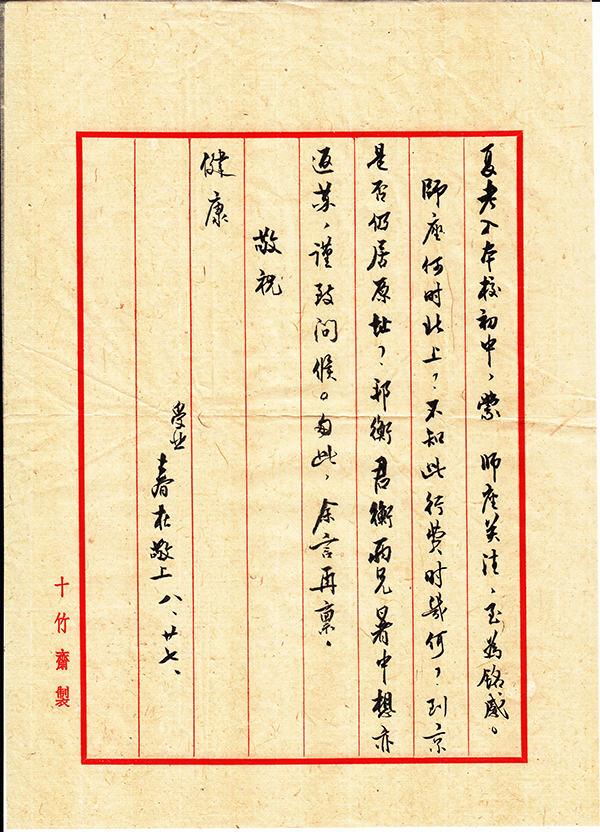 夏考入本校初中、蒙 師座关注、至為铭感。
師座何时北上？不知此行费时幾何？到京
是否仍居原址？邦衡君衡两兄暑中想亦
返苏、谨致问候。此、余言再禀。
敬祝
健康
受业 在敬上 八、廿七、
十竹齋製